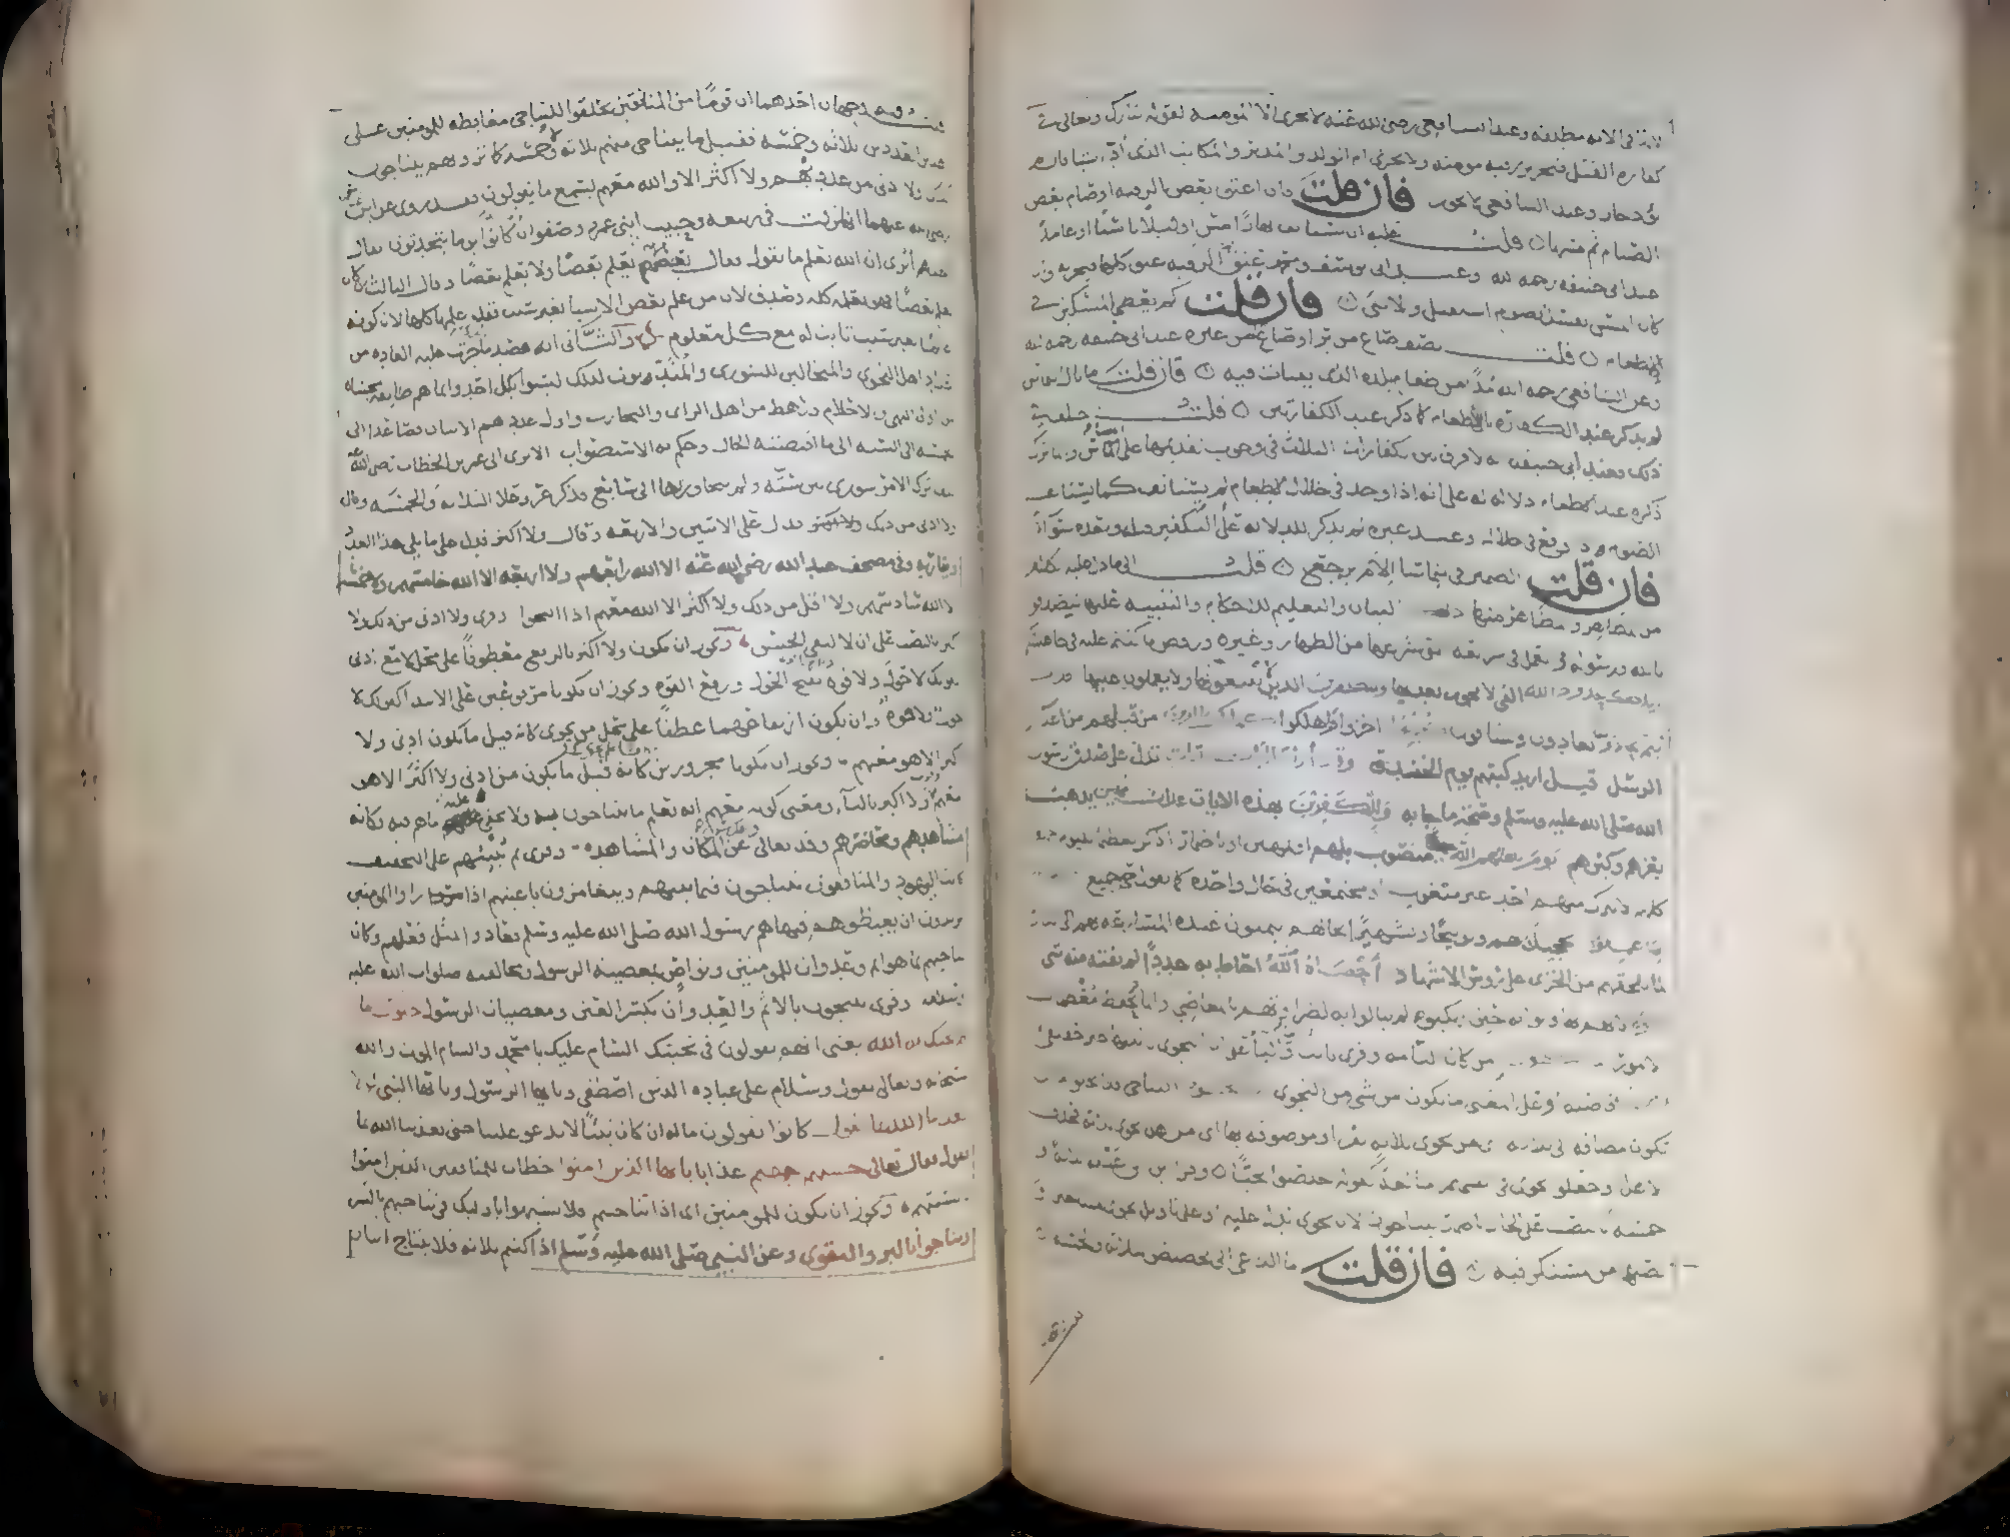 لان في الاية مطلقة وعند الشافعي رضي الله عنه لا تجزى الا المومنة لقوله تبارك وتعالى في
كفارة القتل فتحرير رقبة مومنة ولا تجزى ام الولد والمدبر والمكاتب الذى ادى شيا فان لم
يؤد جاز وعند الشافعي لا يجوز فان قلت فان اعتق بعض الرقبة او صام بعض
الصيام ثم مسها قلت عليه ان يستانف نهارا مس او ليلا ناسيا او عامدا
عند ابى حنيفة رحمه الله وعند ابى يوسف ومحمد عتق بعض الرقبة عتق كلها فيجزيه وان
كان المس يفسد الصوم استقبل والا بنى فان قلت كم يعطى المسكين في
الاطعام قلت نصف صاع من بر او صاع من غيره عند ابى حنيفة رحمه الله
وعن الشافعي رحمه الله مدا من طعام بلده الذى يقتات فيه فان قلت ما بال التماس
لم يذكر عند الكفارة بالاطعام كما ذكر عند الكفارتين قلت اختلف في
ذلك فعند ابى حنيفة انه لا فرق بين الكفارات الثلاث في وجوب تقديمها على المساس وانما ترك
ذكره عند الاطعام دلالة على انه اذا وجد في خلال الاطعام لم يستانف كما يستانف
الصوم اذا وقع في خلاله وعند غيره لم يذكر للدلالة على ان التكفير قبله وبعده سواء
فان قلت الضمير في يتماسا الام يرجع قلت الى ما دل عليه الكلام
من المظاهر والمظاهر منها ذلك البيان والتعليم للاحكام والتنبيه عليها لتصدقوا
بالله ورسوله في العمل في شريعه التى شرعها من الظهار وغيره ورفض ما كنتم عليه في جاهليتكم
وتلك حدود الله التى لا يجوز تعديها وللكفرين الذين لا يتبعونها ولا يعملون عليها عذاب
اليم يحادون يعادون ويشاقون كبتوا اخزوا واهلكوا كما كبت الذين من قبلهم من اعداء
الرسل قيل اريد كبتهم يوم الخندق وقد انزلنا ايات بينات تدل على صدق رسول
الله صلى الله عليه وسلم وصحة ما جا به وللكفرين بهذه الايات عذاب مهين يذهب
بعزهم وكبرهم يوم يبعثهم الله منصوب بلهم او بمهين او باضمار اذكر تعظيما لليوم جميعا
كلهم لا يترك منهم احد غير مبعوث او مجتمعين في حال واحدة كما يقول حى جميع فينبئهم
بما عملوا تخجيلا لهم وتوبيخا وتشهيرا بحالهم يتمنون عنده المسارعة بهم الى النار
لما يلحقهم من الخزى على رؤس الاشهاد احصاه الله احاط به عددا لم يفته منه شى
ونسوه لانهم تهاونوا به حين ارتكبوه لم يبالوا به لضراوتهم بالمعاصي وانما تحفظ معظمات
الامور ما يكون من كان التامة وقرى باليا والتا على ان النجوى تانيثها غير حقيقى
ومن فاصلة او على ان المعنى ما يكون من شى من النجوى والنجوى التناجى فلا يخلو ان
تكون مضافة الى ثلاثة اى من نجوى ثلاثة نفر او موصوفة بها اى من اهل نجوى ثلاثة فحذف
الاهل او جعلوا نجوى في انفسهم مبالغة كقوله خلصوا نجيا وقرا ابن ابى عبلة ثلاثة و
خمسة بالنصب على الحال باضمار يتناجون لان نجوى تدل عليه او على تاويل نجوى بمتناجين و
نصبها من المستكن فيه فان قلت ما الداعى الى تخصيص الثلاثة والخمسة
قلت فيه وجهان احدهما ان قوما من المنافقين تحلقوا للتناجى مغايظة للمومنين على
هذين العددين ثلاثة وخمسة فقيل ما يتناجى منهم ثلاثة ولا خمسة كما ترونهم يتناجون
كذلك ولا ادنى من عددهم ولا اكثر الا والله معهم يسمع ما يقولون فقد روى عن ابن عباس
رضى الله عنهما انها نزلت في ربيعة وحبيب ابنى عمرو وصفوان كانوا يوما يتحدثون فقال
احدهم اترى ان الله يعلم ما نقول فقال بعضهم يعلم بعضا ولا يعلم بعضا وقال الثالث ان كان
يعلم بعضا فهو يعلم كله وصدق لان من علم بعض الاشيا بغير سبب فقد علمها كلها لان كونه
عالما بغير سبب ثابت له مع كل معلوم والثانى انه قصد ما جرت عليه العادة من
اعداد اهل النجوى والمتخالين للشورى والمنتدبون لذلك ليسوا بكل احد وانما هم طائفة مجتباة
من اولى النهى والاحلام ورهط من اهل الراى والتجارب واول عددهم الاثنان فصاعدا الى
خمسة الى الستة الى ما اقتضته الحال وحكم به الاستصواب الا ترى الى عمر بن الخطاب رضى الله عنه
كيف ترك الامر شورى بين ستة ولم يتجاوز بها الى سابع فذكر عز وعلا الثلاثة والخمسة وقال
ولا ادنى من ذلك فدل على الاثنين والاربعة وقال ولا اكثر فدل على ما يلى هذا العدد
ويقاربه وفي مصحف عبد الله رضى الله عنه الا الله رابعهم ولا اربعة الا الله خامسهم ولا خمسة
الا الله سادسهم ولا اقل من ذلك ولا اكثر الا الله معهم اذا انتجوا وقرى ولا ادنى من ذلك ولا
اكثر بالنصب على ان لا لنفى الجنس ويجوز ان يكون ولا اكثر بالرفع معطوفا على محل لا مع ادنى
كقولك لا حول ولا قوة بفتح الحول ورفع القوة ويجوز ان يكونا مرفوعين على الابتدا كقولك لا
حول ولا قوة وان يكون ارتفاعهما عطفا على محل من نجوى كانه قيل ما يكون ادنى ولا
اكثر الا هو معهم ويجوز ان يكونا مجرورين كانه قيل ما يكون من ادنى ولا اكثر الا هو
معهم ولا اكبر بالبا ومعنى كونه معهم انه يعلم ما يتناجون به ولا يخفى عليه ما هم فيه فكانه
مشاهدهم ومحاضرهم وقد تعالى عن المكان والمشاهدة وقرى ثم ينبئهم على التخفيف
كانت اليهود والمنافقون يتناجون فيما بينهم ويتغامزون باعينهم اذا راوا المومنين
يريدون ان يغيظوهم فنهاهم رسول الله صلى الله عليه وسلم فعادوا لمثل فعلهم وكان
تناجيهم بما هو اثم وعدوان للمومنين وتواص بمعصية الرسول ومخالفته صلوات الله عليه
وسلامه وقرى ينتجون بالاثم والعدوان بكسر العين ومعصيات الرسول حيوك بما
لم يحيك به الله يعنى انهم يقولون في تحيتك السام عليك يا محمد والسام الموت والله
سبحانه وتعالى يقول وسلام على عباده الذين اصطفى ويا ايها الرسول ويا ايها النبى لولا
يعذبنا الله بما نقول كانوا يقولون ما له ان كان نبيا لا يدعو علينا حتى يعذبنا الله بما
نقول فقال تعالى حسبهم جهنم عذابا يا ايها الذين امنوا خطاب للمنافقين الذين امنوا
بالسنتهم ويجوز ان يكون للمومنين اى اذا تناجيتم فلا تشبهوا باوليك في تناجيهم بالشر
وتناجوا بالبر والتقوى وعن النبى صلى الله عليه وسلم اذا كنتم ثلاثة فلا يتناج اثنان